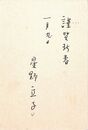 謹賀新春
一月元旦
星野立子